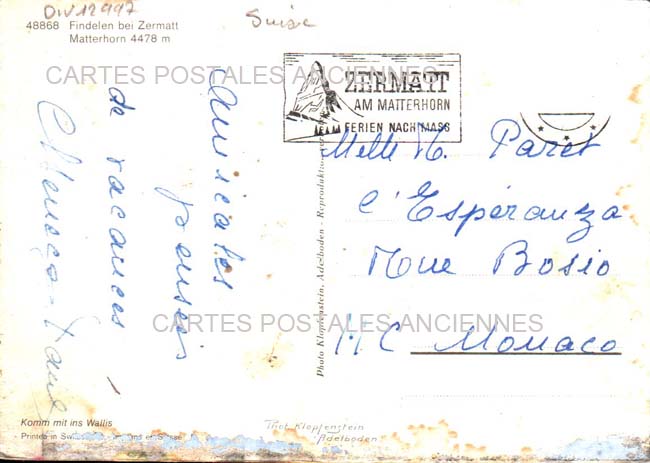 DIV12997
Suisse
48868 Findelen bei Zermatt
Matterhorn 4478 m
CARTES POSTALES ANCIENNES
ZERMATT
AM MATTERHORN
FERIEN NACH MASS
Amicales
pensées
de vacances
Melle M. Paret
l'Espéranza
Rue Bosio
MC Monaco
Photo Klopfenstein, Adelboden - Reproduktion
CARTES POSTALES ANCIENNES
Komm mit ins Wallis
Printed in
Phot Klopfenstein
Adelboden